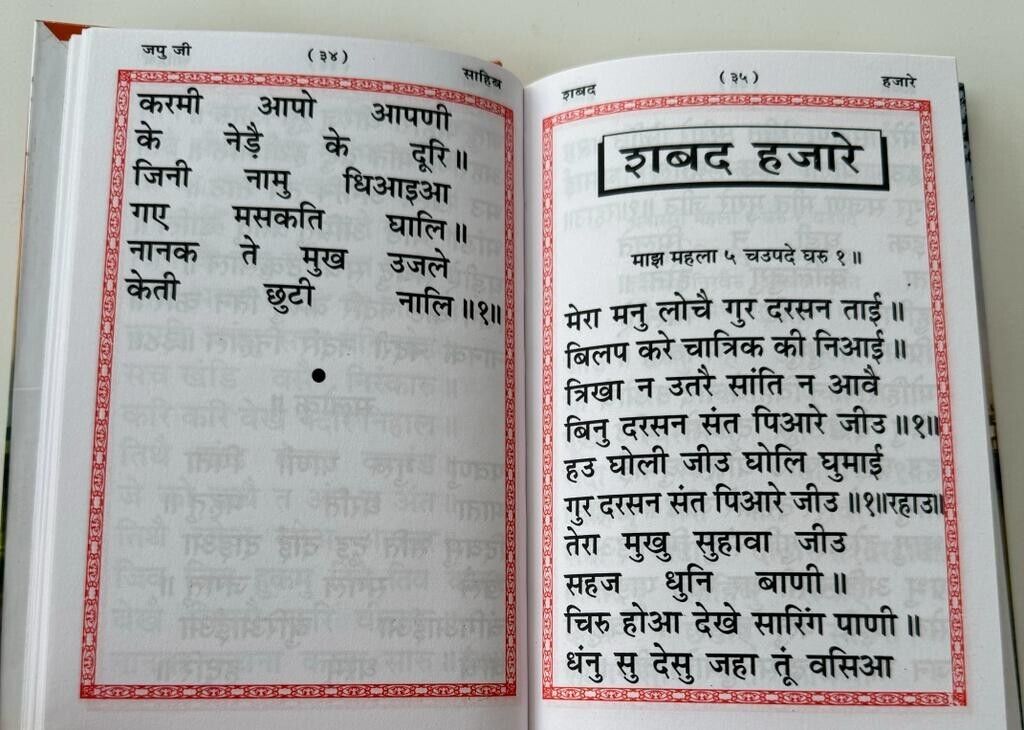 जपु जी ( ३४ ) साहिब
करमी आपो आपणी
के नेड़ै के दूरि॥
जिनी नामु धिआइआ
गए मसकति घालि॥
नानक ते मुख उजले
केती छुटी नालि॥१॥
शबद ( ३५ ) हजारे
शबद हजारे
माझ महला ५ चउपदे घरु १॥
मेरा मनु लोचै गुर दरसन ताई॥
बिलप करे चात्रिक की निआई॥
त्रिखा न उतरै सांति न आवै
बिनु दरसन संत पिआरे जीउ॥१॥
हउ घोली जीउ घोलि घुमाई
गुर दरसन संत पिआरे जीउ॥१॥रहाउ॥
तेरा मुखु सुहावा जीउ
सहज धुनि बाणी॥
चिरु होआ देखे सारिंग पाणी॥
धंनु सु देसु जहा तूं वसिआ